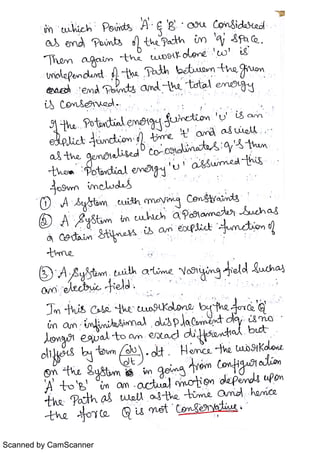 in which Points 'A' & 'B' are Considered
as end Points of the Path in 'q' space.
Then again the workdone 'w' is
independent of the Path between the given
end Points and the total energy
is Conserved.
If the Potential energy function 'U' is an
explict function of time 't' and as well
as the generalised co-ordinates q's then
the Potential energy 'U' assumed this
form includes
① A System with moving Constraints
② A System in which a Parameter Such as
a Certain Stifness is an explict function of
time
③ A System with a time Varying field Such as
an electric field.
In this Case the workdone by the force 'Q'
in an infinitesimal displacement dq is no
longer equal to an exact differential but
differs by term (∂U/∂t).dt. Hence the workdone
on the System in going from Configuration
'A' to 'B' in an actual motion depends upon
the Path as well as the time and hence
the force Q is not Conservative.
Scanned by CamScanner